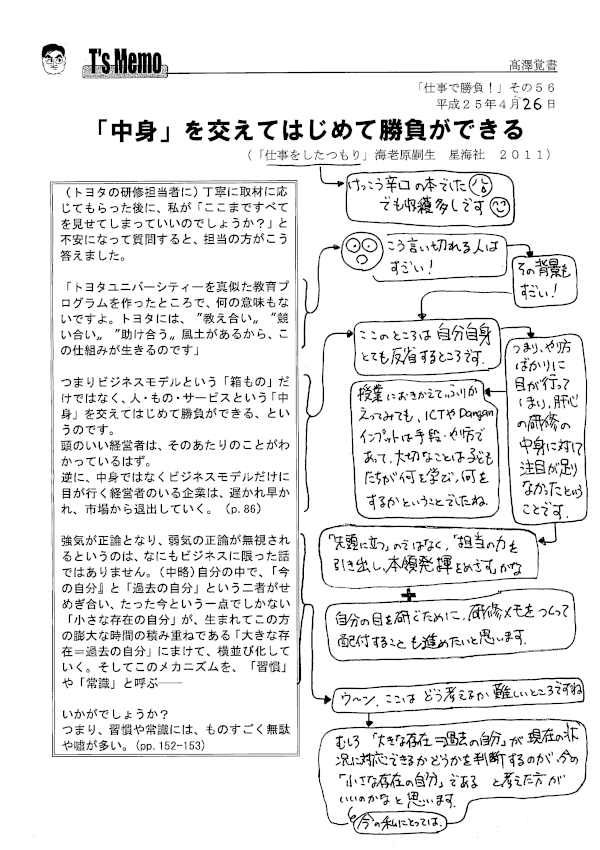 T's Memo
髙澤覚書
「仕事で勝負！」その５６
平成２５年４月２６日
「中身」を交えてはじめて勝負ができる
（「仕事をしたつもり」海老原嗣生　星海社　２０１１）
（トヨタの研修担当者に）丁寧に取材に応
じてもらった後に、私が「ここまですべて
を見せてしまっていいのでしょうか？」と
不安になって質問すると、担当の方がこう
答えました。
「トヨタユニバーシティーを真似た教育プ
ログラムを作ったところで、何の意味もな
いですよ。トヨタには、〝教え合い〟〝競
い合い〟〝助け合う〟風土があるから、こ
の仕組みが生きるのです」
つまりビジネスモデルという「箱もの」だ
けではなく、人・もの・サービスという「中
身」を交えてはじめて勝負ができる、とい
うのです。
頭のいい経営者は、そのあたりのことがわ
かっているはず。
逆に、中身ではなくビジネスモデルだけに
目が行く経営者のいる企業は、遅かれ早か
れ、市場から退出していく。（p.86）
強気が正論となり、弱気の正論が無視され
るというのは、なにもビジネスに限った話
ではありません。（中略）自分の中で、「今
の自分』と「過去の自分」という二者がせ
めぎ合い、たった今という一点でしかない
「小さな存在の自分」が、生まれてこの方
の膨大な時間の積み重ねである「大きな存
在＝過去の自分」にまけて、横並び化して
いく。そしてこのメカニズムを、「習慣」
や「常識」と呼ぶ──
いかがでしょうか？
つまり、習慣や常識には、ものすごく無駄
や嘘が多い。（pp.152-153）
けっこう辛口の本でした
でも収穫多しです
こう言い切れる人は
すごい！
その背景も
すごい！
ここのところは自分自身
とても反省するところです。
つまり、やり方
ばかりに
目が行って
しまい、肝心
の研修の
中身に対して
注目が足り
なかったという
ことです。
授業におきかえてふりか
えってみても、ICTやDangan
インプットは手段・やり方で
あって、大切なことは子ども
たちが何を学び、何を
するかということでしたね。
「先頭に立つ」のではなく、「担当の力を
引き出し、本領発揮をめざす」かな
＋
自分の目を研ぐために、研修メモをつくって
配付することも進めたいと思います。
ウ〜ン、ここは どう考えるか 難しいところですね
むしろ「大きな存在＝過去の自分」が 現在の状
況に対応できるかどうかを判断するのが、今の
「小さな存在の自分」である と考えた方が
いいのかなと思います。
今の私にとっては。